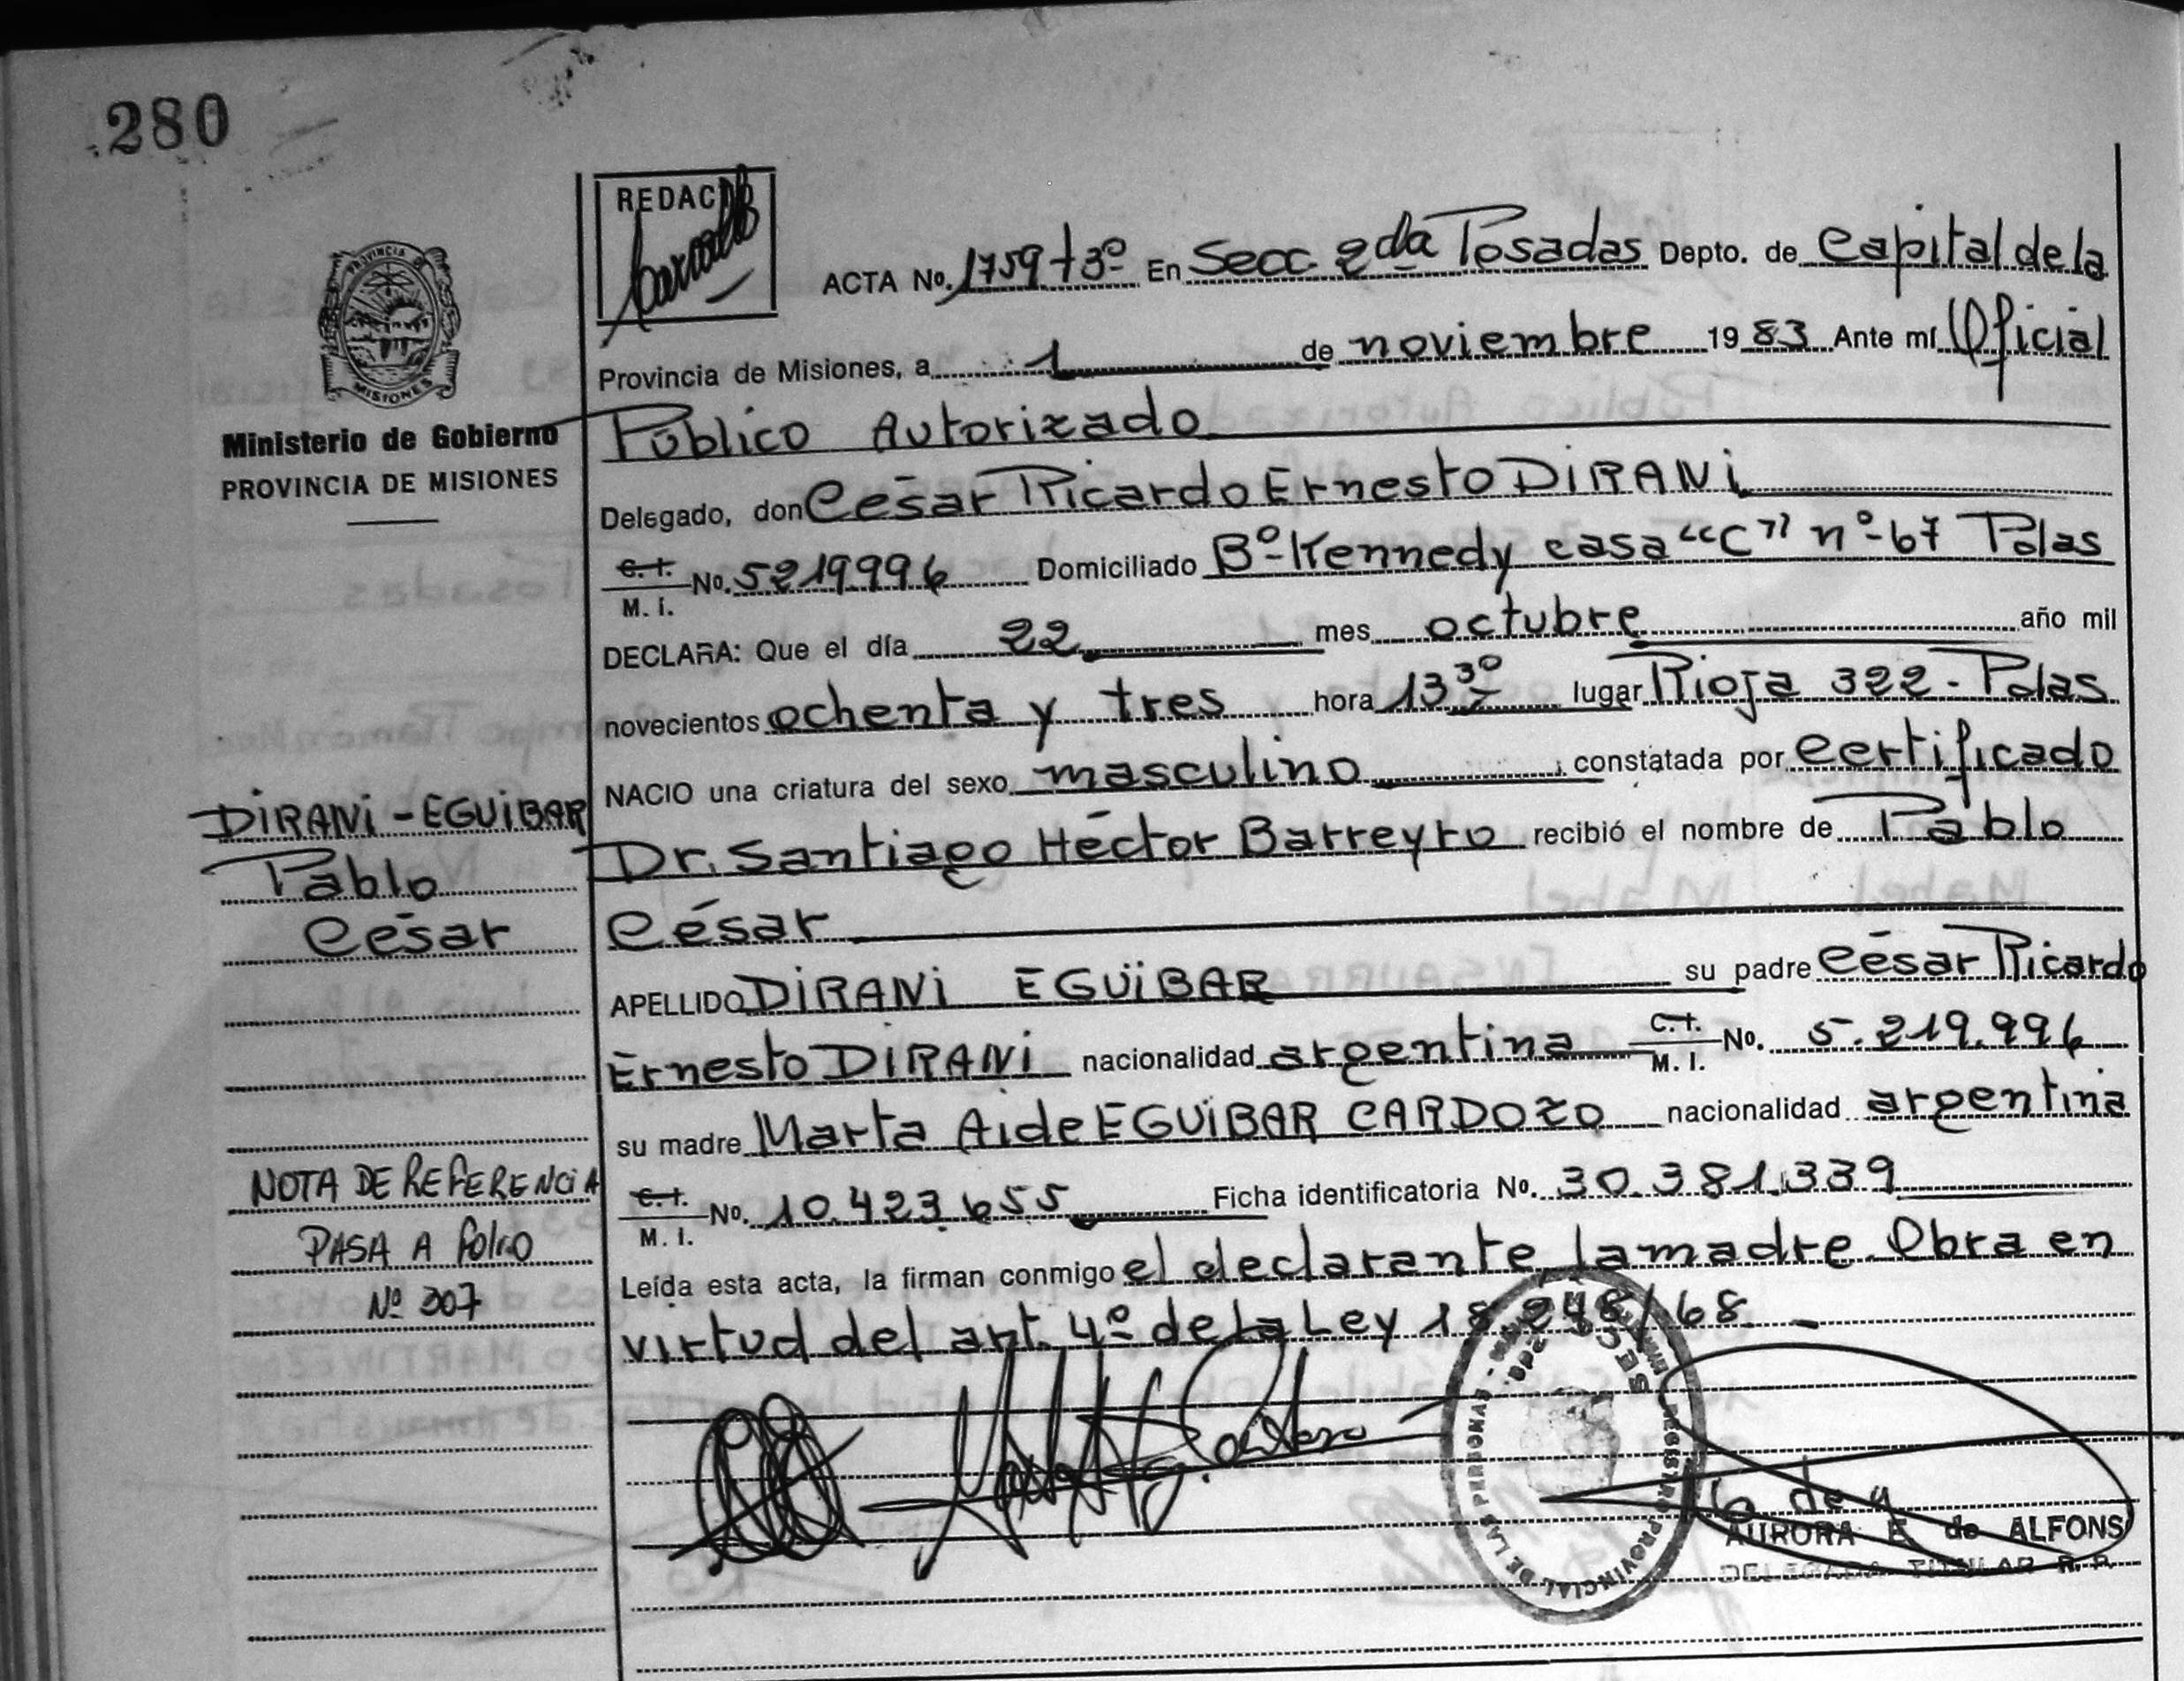 280
REDAC
ACTA No. 1759 t 3º En Secc. 2da Posadas Depto. de Capital de la
Provincia de Misiones, a 1 de noviembre 1983 Ante mí Oficial
Público Autorizado
Delegado, don César Ricardo Ernesto DIRANI
C.I. M. I. No. 5219996 Domiciliado Bº Kennedy casa "C" nº 67 Pdas
DECLARA: Que el día 22 mes octubre año mil
novecientos ochenta y tres hora 13 30 lugar Rioja 322 - Pdas
NACIO una criatura del sexo masculino constatada por certificado
Dr. Santiago Héctor Barreyro recibió el nombre de Pablo
César
APELLIDO DIRANI EGUIBAR su padre César Ricardo
Ernesto DIRANI nacionalidad argentina C.I. M. I. No. 5.219.996
su madre Marta Aide EGUIBAR CARDOZO nacionalidad argentina
C.I. M. I. No. 10.423.655 Ficha identificatoria No. 30.381.339
Leída esta acta, la firman conmigo el declarante, la madre. Obra en
virtud del art. 4º de la Ley 18.248/68. -
PROVINCIA DE
MISIONES
Ministerio de Gobierno
PROVINCIA DE MISIONES
DIRANI - EGUIBAR
Pablo
César
NOTA DE REFERENCIA
PASA A FOLIO
Nº 307
REGISTRO PROVINCIAL DE LAS PERSONAS
SECC
AURORA E de ALFONS
DELEGADA TITULAR R. P.